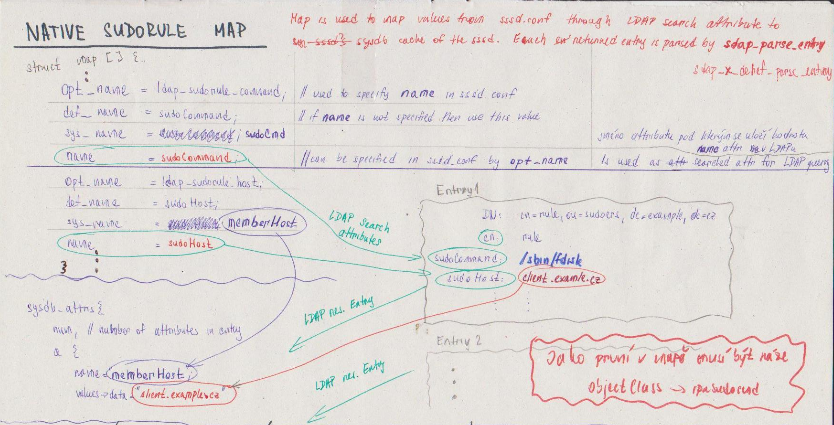 NATIVE SUDORULE MAP
Map is used to map values from sssd.conf through LDAP search attribute to
sysdb cache of the sssd. Each returned entry is parsed by sdap_parse_entry
struct map [] {
opt_name = ldap_sudorule_command; // used to specify name in sssd.conf
def_name = sudoCommand; // if name is not specified then use this value
sys_name = sudoCmd
jméno attributu pod kterým se uloží hodnota
name attr v LDAPu
name = sudoCommand; //can be specified in sssd.conf by opt_name
Is used as searched attr for LDAP query
opt_name = ldap_sudorule_host;
def_name = sudoHost;
sys_name = memberHost
name = sudoHost
}
LDAP Search
attributes
Entry 1
DN: cn=rule, ou=sudoers, dc=example, dc=cz
cn: rule
sudoCommand: /sbin/fdisk
sudoHost: client.example.cz
LDAP res. Entry
sysdb_attrs {
num, // number of attributes in entry
a {
name = memberHost;
values->data = "client.example.cz"
LDAP res. Entry
Entry 2
Jako první v mapě musí být naše
objectClass → ipasudocmd